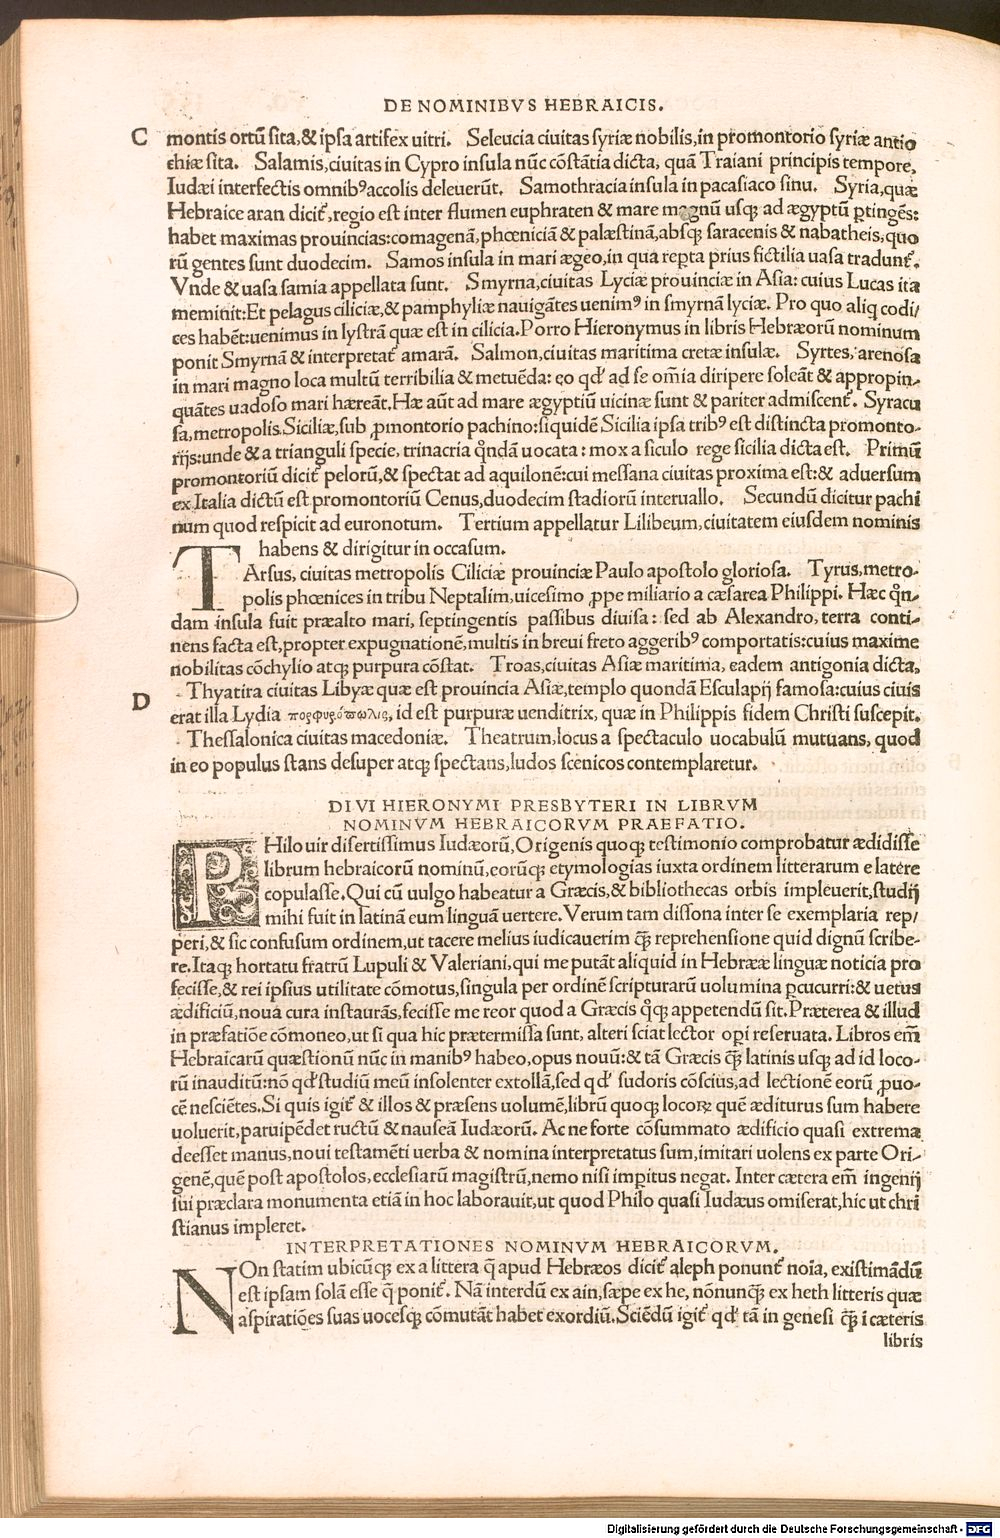 DE NOMINIBVS HEBRAICIS.
C montis ortū sita,& ipsa artifex uitri. Seleucia ciuitas syriæ nobilis,in promontorio syriæ antio
chiæ sita. Salamis,ciuitas in Cypro insula nūc cōstātia dicta, quā Traiani principis tempore,
Iudæi interfectis omnibꝰ accolis deleuerūt. Samothracia insula in pacasiaco sinu. Syria,quæ
Hebraice aran dicit᷑,regio est inter flumen euphraten & mare magnū usqꝫ ad ægyptū ꝑtingēs:
habet maximas prouincias:comagenā,phœniciā & palæstinā,absqꝫ saracenis & nabatheis,quo
rū gentes sunt duodecim. Samos insula in mari ægeo,in qua reꝑta prius fictilia uasa tradunt᷑.
Vnde & uasa samia appellata sunt. Smyrna,ciuitas Lyciæ prouinciæ in Asia: cuius Lucas ita
meminit:Et pelagus ciliciæ,& pamphyliæ nauigātes uenimꝰ in smyrnā lyciæ. Pro quo aliq codi/
ces habēt:uenimus in lystrā quæ est in cilicia.Porro Hieronymus in libris Hebræorū nominum
ponit Smyrnā & interpretat᷑ amarā. Salmon,ciuitas maritima cretæ insulæ. Syrtes, arenosa
in mari magno loca multū terribilia & metuēda: eo qd' ad se om̄ia diripere soleāt & appropin-
quātes uadoso mari hæreāt.Hæ aūt ad mare ægyptiū uicinæ sunt & pariter admiscent᷑. Syracu
sa,metropolis.Siciliæ,sub ꝓmontorio pachino:siquidē Sicilia ipsa tribꝰ est distincta promonto-
rijs:unde & a trianguli specie, trinacria q̊ndā uocata : mox a siculo rege sicilia dicta est. Primū
promontoriū dicit᷑ pelorū,& spectat ad aquilonē:cui messana ciuitas proxima est:& aduersum
ex Italia dictū est promontoriū Cenus,duodecim stadiorū interuallo. Secundū dicitur pachi
num quod respicit ad euronotum. Tertium appellatur Lilibeum,ciuitatem eiusdem nominis
habens & dirigitur in occasum.
TArsus, ciuitas metropolis Ciliciæ prouinciæ Paulo apostolo gloriosa. Tyrus,metro-
polis phœnices in tribu Neptalim,uicesimo ꝓpe miliario a cæsarea Philippi. Hæc q̊n-
dam insula fuit præalto mari, septingentis passibus diuisa : sed ab Alexandro, terra conti-
nens facta est,propter expugnationē,multis in breui freto aggeribꝰ comportatis:cuius maxime
nobilitas cōchylio atqꝫ purpura cōstat. Troas,ciuitas Asiæ maritima, eadem antigonia dicta,
D Thyatira ciuitas Libyæ quæ est prouincia Asiæ,templo quondā Esculapij famosa:cuius ciuis
erat illa Lydia πορφυρόπωλις, id est purpuræ uenditrix, quæ in Philippis fidem Christi suscepit.
Thessalonica ciuitas macedoniæ. Theatrum,locus a spectaculo uocabulū mutuans, quod
in eo populus stans desuper atqꝫ spectans,ludos scenicos contemplaretur.
DIVI HIERONYMI PRESBYTERI IN LIBRVM
NOMINVM HEBRAICORVM PRAEFATIO.
PHilo uir disertissimus Iudæorū,Origenis quoqꝫ testimonio comprobatur ædidisse
librum hebraicorū nominū,eorūqꝫ etymologias iuxta ordinem litterarum e latere
copulasse.Qui cū uulgo habeatur a Græcis,& bibliothecas orbis impleuerit,studij
mihi fuit in latinā eum linguā uertere.Verum tam dissona inter se exemplaria rep/
peri,& sic confusum ordinem,ut tacere melius iudicauerim q̄ꝫ reprehensione quid dignū scribe-
re.Itaqꝫ hortatu fratrū Lupuli & Valeriani,qui me putāt aliquid in Hebrææ linguæ noticia pro
fecisse,& rei ipsius utilitate cōmotus,singula per ordinē scripturarū uolumina ꝑcucurri:& uetus
ædificiū,noua cura instaurās,fecisse me reor quod a Græcis q̊qꝫ appetendū sit.Præterea & illud
in præfatiōe cōmoneo,ut si qua hic prætermissa sunt, alteri sciat lector opi reseruata. Libros em̄
Hebraicarū quæstionū nūc in manibꝰ habeo,opus nouū:& tā Græcis q̄ꝫ latinis usqꝫ ad id loco-
rū inauditū:nō qd' studiū meū insolenter extollā,sed qd' sudoris cōscius,ad lectionē eorū ꝓuo-
cē nesciētes.Si quis igit᷑ & illos & præsens uolumē,librū quoqꝫ locoꝝ quē æditurus sum habere
uoluerit,paruipēdet ructū & nauseā Iudæorū. Ac ne forte cōsummato ædificio quasi extrema
deesset manus,noui testamēti uerba & nomina interpretatus sum,imitari uolens ex parte Ori-
genē,quē post apostolos,ecclesiarū magistrū,nemo nisi imꝑitus negat. Inter cætera em̄ ingenij
sui præclara monumenta etiā in hoc laborauit,ut quod Philo quasi Iudæus omiserat,hic ut chri
stianus impleret.
INTERPRETATIONES NOMINVM HEBRAICORVM.
NOn statim ubicūqꝫ ex a littera q̄ apud Hebræos dicit᷑ aleph ponunt᷑ noīa, existimādū
est ipsam solā esse q̄ ponit᷑. Nā interdū ex ain,sæpe ex he, nōnunq̄ꝫ ex heth litteris quæ
aspiratiōes suas uocesqꝫ cōmutāt habet exordiū.Sciēdū igit᷑ qd' tā in genesi q̄ꝫ ī cæteris
libris
Digitalisierung gefördert durch die Deutsche Forschungsgemeinschaft - DFG